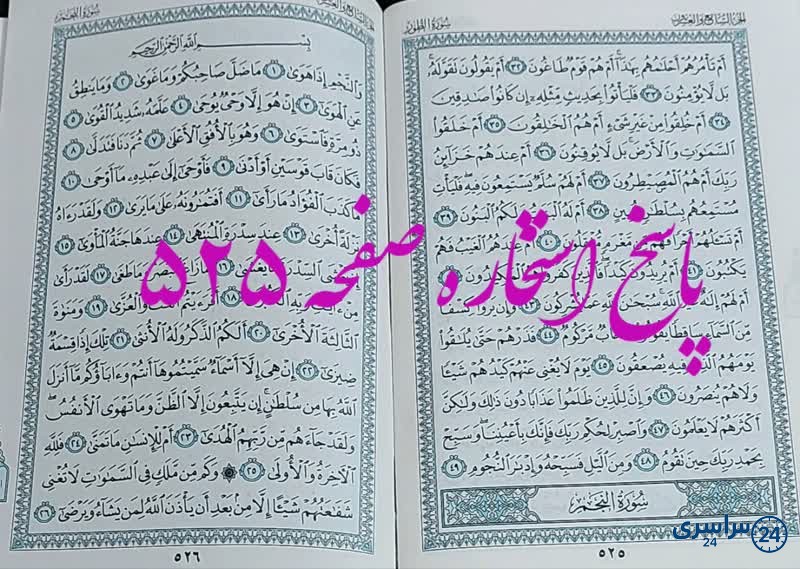 الجزء السابع والعشرون
سورة الطور
أَمْ تَأْمُرُهُمْ أَحْلَٰمُهُم بِهَٰذَآ أَمْ هُمْ قَوْمٌ طَاغُونَ ٣٢ أَمْ يَقُولُونَ تَقَوَّلَهُۥ
بَل لَّا يُؤْمِنُونَ ٣٣ فَلْيَأْتُوا۟ بِحَدِيثٍ مِّثْلِهِۦٓ إِن كَانُوا۟ صَٰدِقِينَ
٣٤ أَمْ خُلِقُوا۟ مِنْ غَيْرِ شَىْءٍ أَمْ هُمُ ٱلْخَٰلِقُونَ ٣٥ أَمْ خَلَقُوا۟
ٱلسَّمَٰوَٰتِ وَٱلْأَرْضَ بَل لَّا يُوقِنُونَ ٣٦ أَمْ عِندَهُمْ خَزَآئِنُ
رَبِّكَ أَمْ هُمُ ٱلْمُصَۣيْطِرُونَ ٣٧ أَمْ لَهُمْ سُلَّمٌ يَسْتَمِعُونَ فِيهِ فَلْيَأْتِ
مُسْتَمِعُهُم بِسُلْطَٰنٍ مُّبِينٍ ٣٨ أَمْ لَهُ ٱلْبَنَٰتُ وَلَكُمُ ٱلْبَنُونَ ٣٩
أَمْ تَسْـَٔلُهُمْ أَجْرًا فَهُم مِّن مَّغْرَمٍ مُّثْقَلُونَ ٤٠ أَمْ عِندَهُمُ ٱلْغَيْبُ فَهُمْ
يَكْتُبُونَ ٤١ أَمْ يُرِيدُونَ كَيْدًا فَٱلَّذِينَ كَفَرُوا۟ هُمُ ٱلْمَكِيدُونَ ٤٢
أَمْ لَهُمْ إِلَٰهٌ غَيْرُ ٱللَّهِ سُبْحَٰنَ ٱللَّهِ عَمَّا يُشْرِكُونَ ٤٣ وَإِن يَرَوْا۟ كِسْفًا
مِّنَ ٱلسَّمَآءِ سَاقِطًا يَقُولُوا۟ سَحَابٌ مَّرْكُومٌ ٤٤ فَذَرْهُمْ حَتَّىٰ يُلَٰقُوا۟
يَوْمَهُمُ ٱلَّذِى فِيهِ يُصْعَقُونَ ٤٥ يَوْمَ لَا يُغْنِى عَنْهُمْ كَيْدُهُمْ شَيْـًٔا
وَلَا هُمْ يُنصَرُونَ ٤٦ وَإِنَّ لِلَّذِينَ ظَلَمُوا۟ عَذَابًا دُونَ ذَٰلِكَ وَلَٰكِنَّ
أَكْثَرَهُمْ لَا يَعْلَمُونَ ٤٧ وَٱصْبِرْ لِحُكْمِ رَبِّكَ فَإِنَّكَ بِأَعْيُنِنَا وَسَبِّحْ
بِحَمْدِ رَبِّكَ حِينَ تَقُومُ ٤٨ وَمِنَ ٱلَّيْلِ فَسَبِّحْهُ وَإِدْبَٰرَ ٱلنُّجُومِ ٤٩
سُورَةُ ٱلنَّجْمِ
٥٢٥
الجزء السابع والعشرون
سورة النجم
بِسْمِ ٱللَّهِ ٱلرَّحْمَٰنِ ٱلرَّحِيمِ
وَٱلنَّجْمِ إِذَا هَوَىٰ ١ مَا ضَلَّ صَاحِبُكُمْ وَمَا غَوَىٰ ٢ وَمَا يَنطِقُ
عَنِ ٱلْهَوَىٰٓ ٣ إِنْ هُوَ إِلَّا وَحْىٌ يُوحَىٰ ٤ عَلَّمَهُۥ شَدِيدُ ٱلْقُوَىٰ ٥
ذُو مِرَّةٍ فَٱسْتَوَىٰ ٦ وَهُوَ بِٱلْأُفُقِ ٱلْأَعْلَىٰ ٧ ثُمَّ دَنَا فَتَدَلَّىٰ ٨
فَكَانَ قَابَ قَوْسَيْنِ أَوْ أَدْنَىٰ ٩ فَأَوْحَىٰٓ إِلَىٰ عَبْدِهِۦ مَآ أَوْحَىٰ ١٠
مَا كَذَبَ ٱلْفُؤَادُ مَا رَأَىٰٓ ١١ أَفَتُمَٰرُونَهُۥ عَلَىٰ مَا يَرَىٰ ١٢ وَلَقَدْ رَءَاهُ
نَزْلَةً أُخْرَىٰ ١٣ عِندَ سِدْرَةِ ٱلْمُنتَهَىٰ ١٤ عِندَهَا جَنَّةُ ٱلْمَأْوَىٰٓ ١٥
إِذْ يَغْشَى ٱلسِّدْرَةَ مَا يَغْشَىٰ ١٦ مَا زَاغَ ٱلْبَصَرُ وَمَا طَغَىٰ ١٧ لَقَدْ رَأَىٰ
مِنْ ءَايَٰتِ رَبِّهِ ٱلْكُبْرَىٰٓ ١٨ أَفَرَءَيْتُمُ ٱللَّٰتَ وَٱلْعُزَّىٰ ١٩ وَمَنَوٰةَ
ٱلثَّالِثَةَ ٱلْأُخْرَىٰٓ ٢٠ أَلَكُمُ ٱلذَّكَرُ وَلَهُ ٱلْأُنثَىٰ ٢١ تِلْكَ إِذًا قِسْمَةٌ
ضِيزَىٰٓ ٢٢ إِنْ هِىَ إِلَّآ أَسْمَآءٌ سَمَّيْتُمُوهَآ أَنتُمْ وَءَابَآؤُكُم مَّآ أَنزَلَ
ٱللَّهُ بِهَا مِن سُلْطَٰنٍ إِن يَتَّبِعُونَ إِلَّا ٱلظَّنَّ وَمَا تَهْوَى ٱلْأَنفُسُ
وَلَقَدْ جَآءَهُم مِّن رَّبِّهِمُ ٱلْهُدَىٰٓ ٢٣ أَمْ لِلْإِنسَٰنِ مَا تَمَنَّىٰ ٢٤ فَلِلَّهِ
ٱلْءَاخِرَةُ وَٱلْأُولَىٰ ٢٥ ۞ وَكَم مِّن مَّلَكٍ فِى ٱلسَّمَٰوَٰتِ لَا تُغْنِى
شَفَٰعَتُهُمْ شَيْـًٔا إِلَّا مِنۢ بَعْدِ أَن يَأْذَنَ ٱللَّهُ لِمَن يَشَآءُ وَيَرْضَىٰٓ ٢٦
٥٢٦
پاسخ استخاره صفحه ۵۲۵
سراسری 24
24